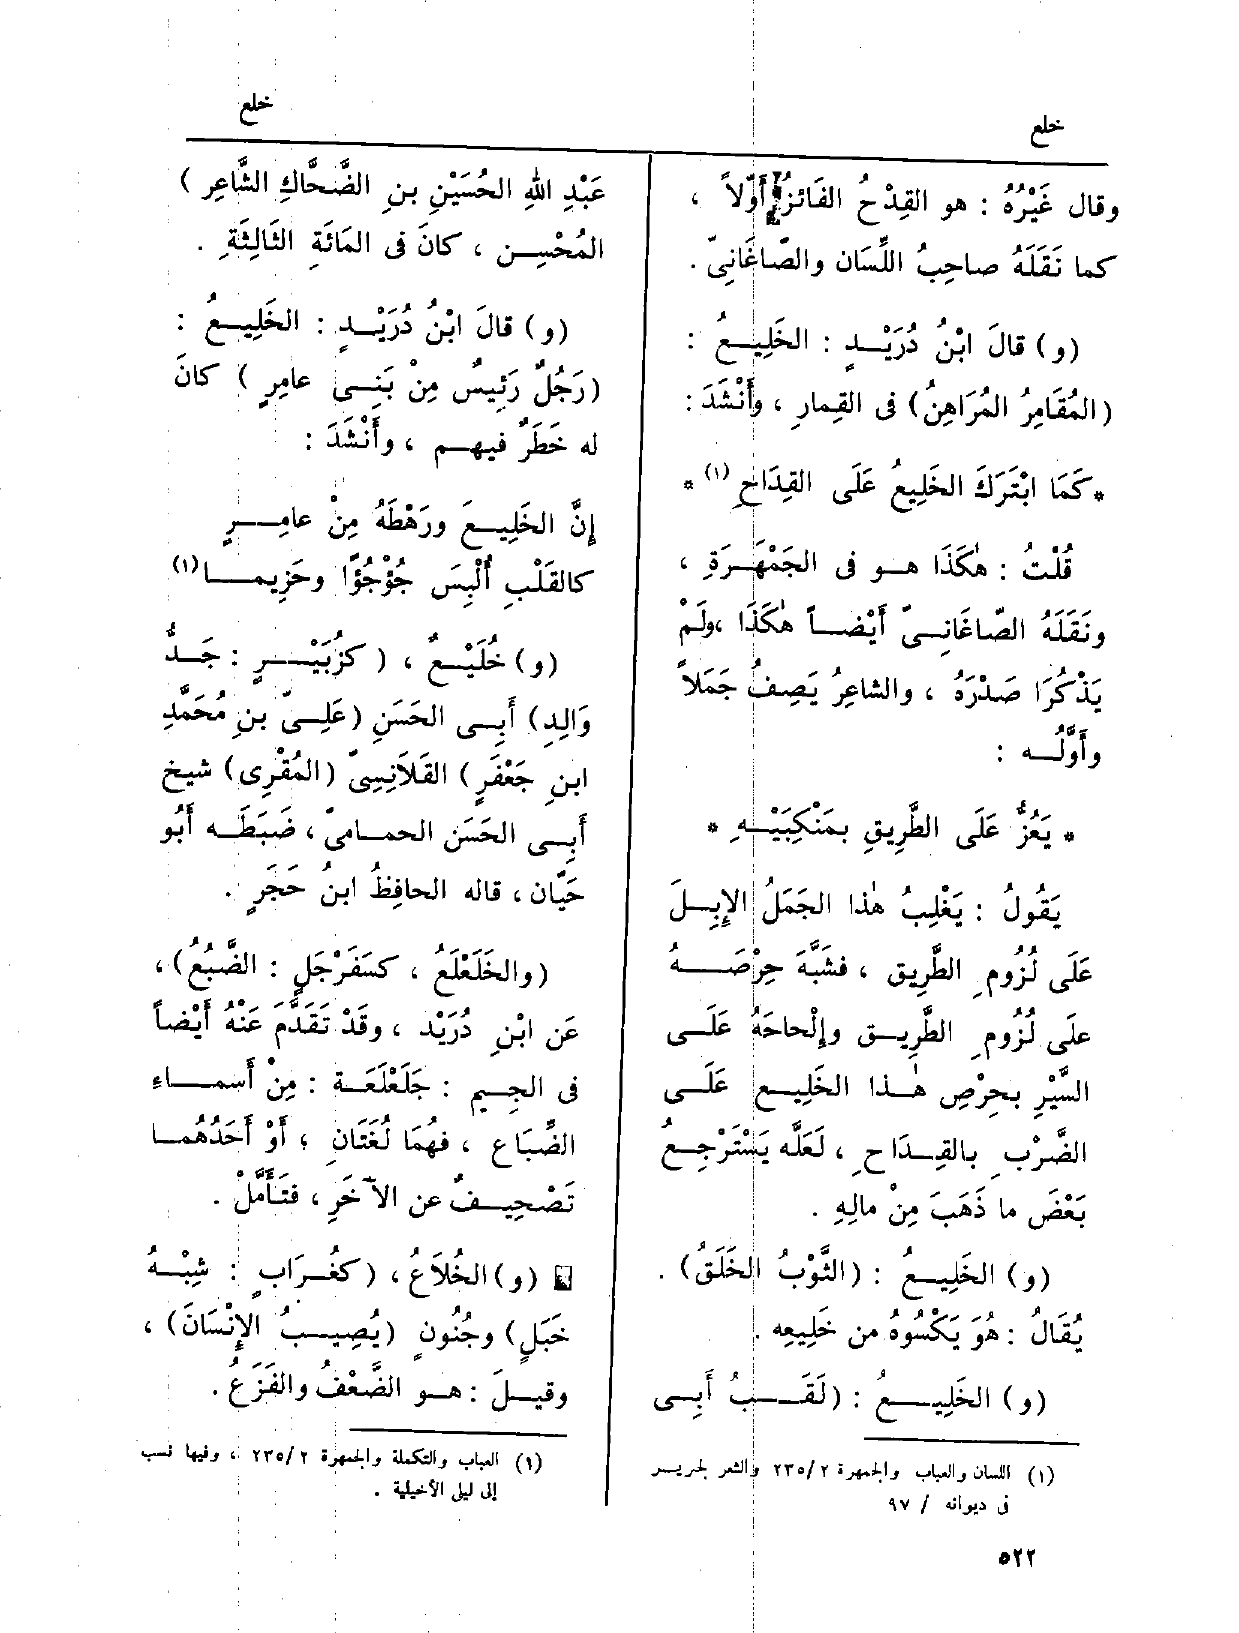 خلع
وقال غَيْرُهُ : هو القِدْحُ الفَائزُ أَوّلاً ،
كما نَقَلَهُ صاحِبُ اللِّسَان والصّاغَانِىّ .
(و) قالَ ابْنُ دُرَيْـدٍ : الخَلِيـعُ :
(المُقَامِرُ المُرَاهِنُ) فى القِمارِ ، وأَنْشَدَ :
*كَمَا ابْتَرَكَ الخَلِيعُ عَلَى القِدَاحِ (١) *
قُلْتُ : هٰكَذَا هـو فى الجَمْهَـرَةِ ،
ونَقَلَهُ الصّاغَانِـىّ أَيْضـاً هٰكَذَا ،ولَمْ
يَذْكُرَا صَدْرَهُ ، والشاعِرُ يَصِفُ جَمَلاً
وأَوَّلُـه :
* يَعُزُّ عَلَى الطَّرِيقِ بِمَنْكِبَيْـهِ *
يَقُولُ : يَغْلِبُ هٰذا الجَمَلُ الإِبِـلَ
عَلَى لُزُومِ الطَّرِيق ، فشَبَّهَ حِرْصَـهُ
علَى لُزُومِ الطَّرِيـق وإِلْحاحَهُ عَلَـى
السَّيْرِ بحِرْصِ هٰـذا الخَلِيـع عَلَـى
الضَّرْبِ بالقِـدَاحِ ، لَعَلَّه يَسْتَرْجِـعُ
بَعْضَ ما ذَهَبَ مِنْ مالِهِ .
(و) الخَلِيـعُ : (الثَّوْبُ الخَلَقُ) .
يُقَالُ : هُوَ يَكْسُوهُ من خَلِيعِه .
(و) الخَلِيـعُ : (لَقَـبُ أَبِـى
(١) اللسان والعباب والجمهرة ٢٣٥/٢ والشعر لجريـر
فى ديوانه / ٩٧
خلع
عَبْدِ اللهِ الحُسَيْنِ بنِ الضَّحَّاكِ الشَّاعِرِ )
المُحْسِـن ، كانَ فى المَائَةِ الثَّالِثَةِ .
(و) قالَ ابْنُ دُرَيْـدٍ : الخَلِيـعُ :
(رَجُلٌ رَئِيسٌ مِنْ بَنِـى عامِرٍ ) كانَ
له خَطَرٌ فيهـم ، وأَنْشَدَ :
إِنَّ الخَلِيـعَ ورَهْطَهُ مِنْ عامِـرٍ
كالقَلْبِ أُلْبِسَ جُؤْجُؤًا وحَزِيمـا (١)
(و) خُلَيْـعٌ ، ( كزُبَيْـرٍ : جَـدُّ
وَالِدِ) أَبِـى الحَسَنِ (عَلِـىّ بنِ مُحَمَّدِ
ابنِ جَعْفَرٍ ) القَلاَنِسِىّ (المُقْرِى) شيخ
أَبِـى الحَسَن الحمـامىّ ، ضَبَطَـه أَبُو
حَيّان ، قاله الحافِظُ ابنُ حَجَرٍ .
(والخَلَعْلَعُ ، كسَفَرْجَلٍ : الضَّبُعُ) ،
عَن ابْنِ دُرَيْد ، وقَدْ تَقَدَّمَ عَنْهُ أَيْضاً
فى الجِـيم : جَلَعْلَعَـة : مِنْ أَسمـاءِ
الضِّبَاع ، فهُمَا لُغَتَانِ ، أَوْ أَحَدُهُمـا
تَصْحِيـفٌ عن الآخَرِ ، فتَأَمَّلْ .
(و) الخُلاَعُ ، (كغُـرَابٍ : شِبْـهُ
خَبَلٍ) وجُنُونٍ (يُصِيـبُ الإِنْسَانَ) ،
وقيـلَ : هـو الضَّعْفُ والفَزَعُ .
(١) العباب والتكملة والجمهرة ٢٣٥/٢ ، وفيها نسب
إلى ليلى الأخيلية .
٥٢٢